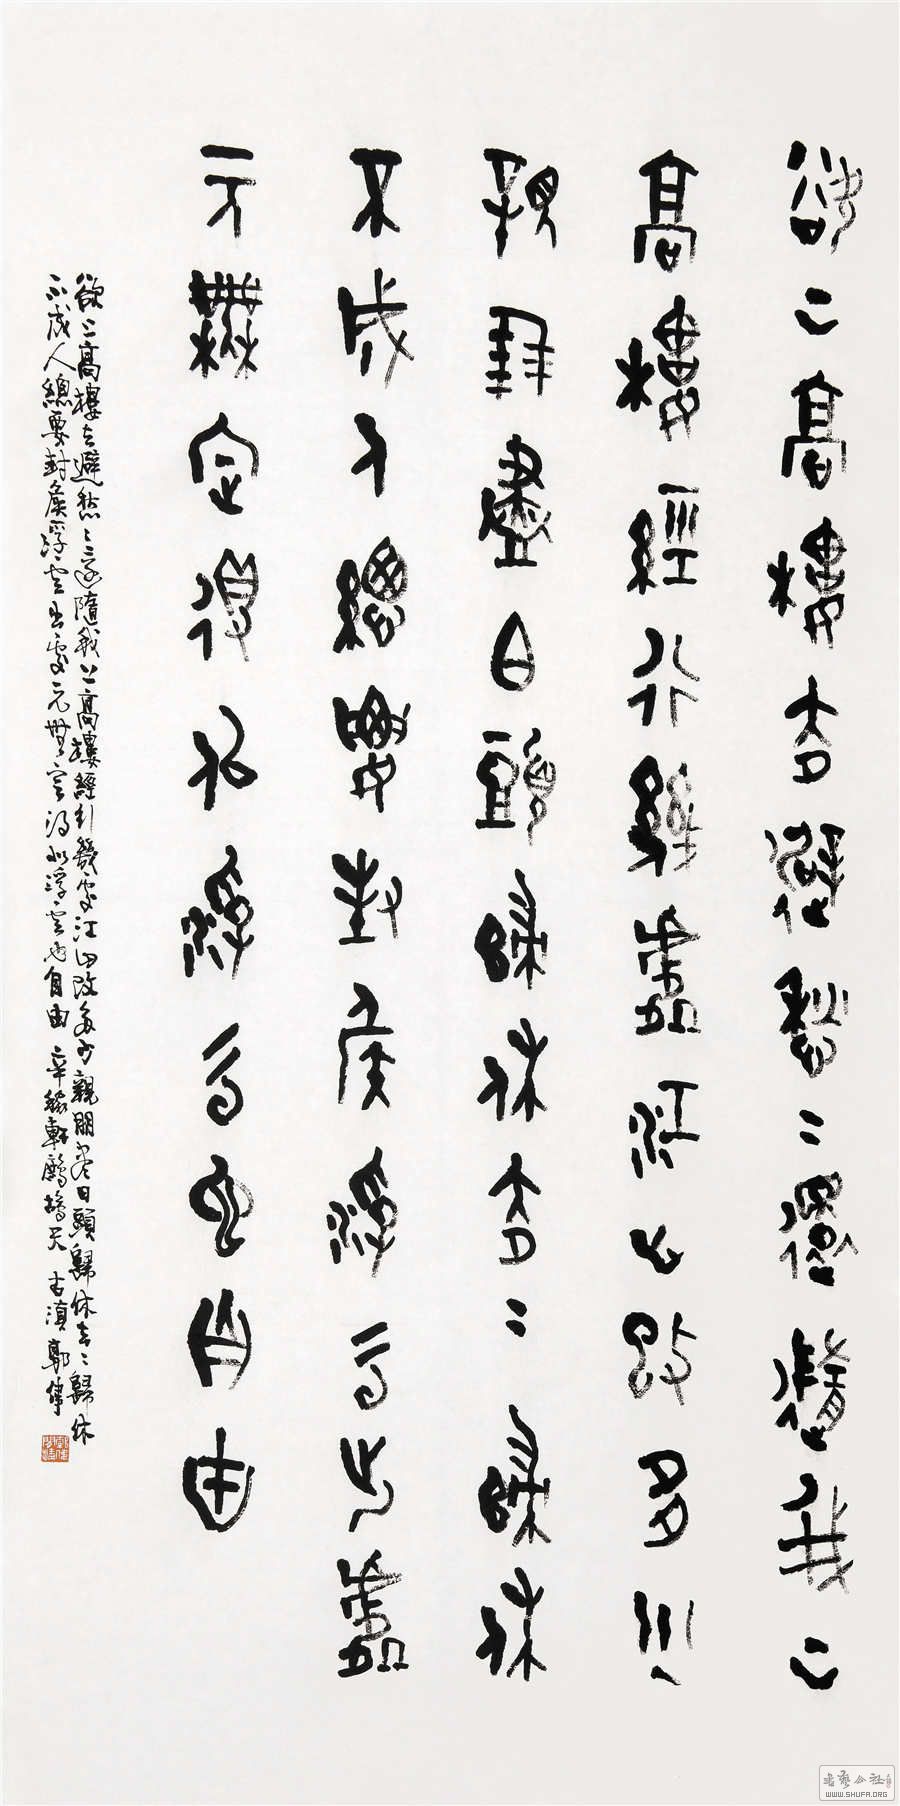 欲上高樓去避愁〻還隨我上
高樓經行幾處江山改多少
親朋盡白頭歸休去〻歸休
不成人總要封侯浮雲出處
元無定得似浮雲也自由
欲上高樓去避愁〻還隨我上高樓經行幾處江山改多少親朋尽白頭歸休去〻歸休
不成人總要封侯浮雲出處元無定得似浮雲也自由 辛稼軒鷓鴣天 古滇郭偉
書藝公社
WWW.SHUFA.ORG